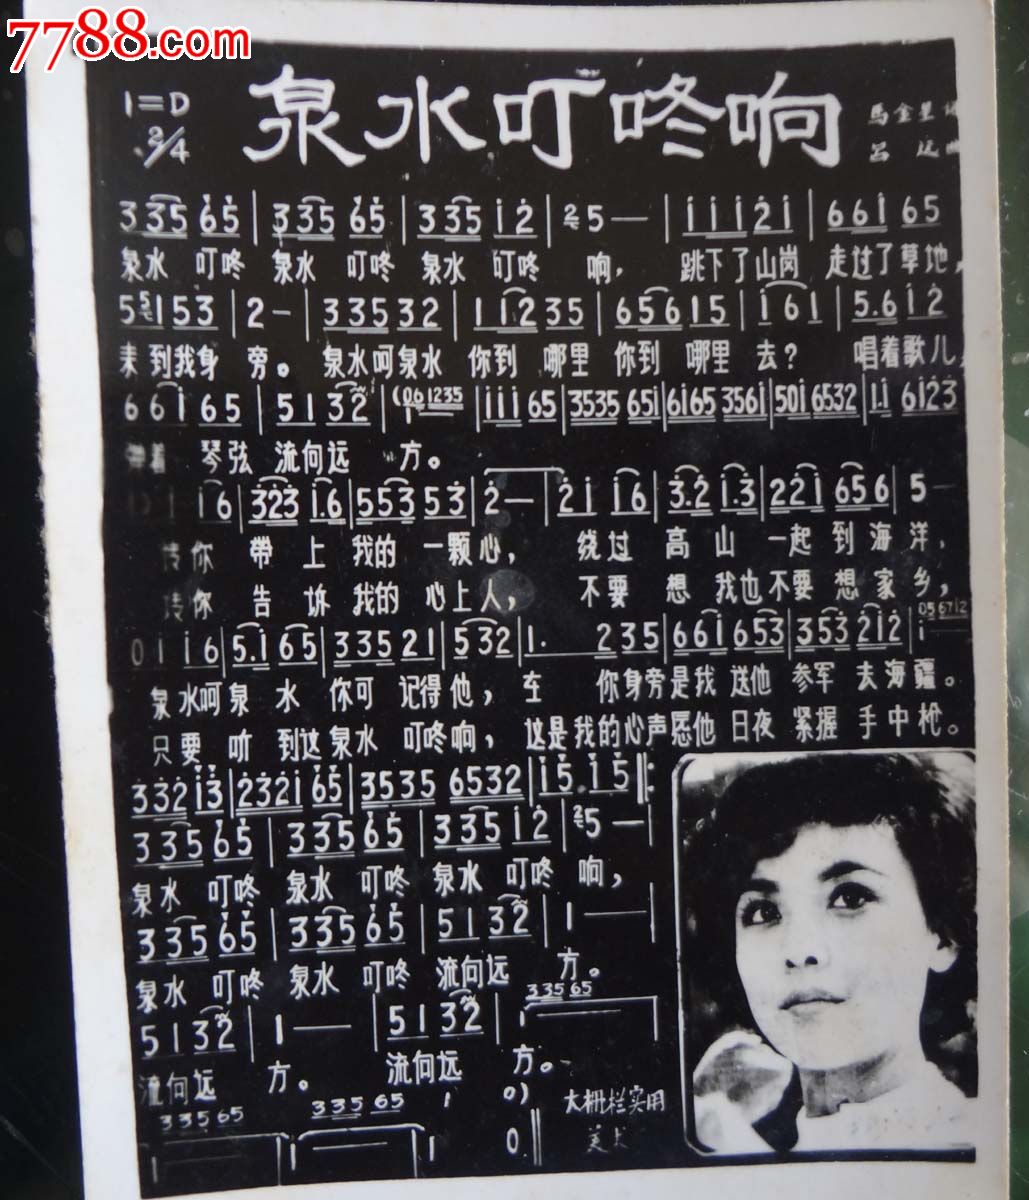 7788.com
泉水叮咚响
1=D
2/4
馬金星
呂远
3 3 5 6 5 | 3 3 5 6 5 | 3 3 5 i 2 | 5 — | i i i 2 i | 6 6 i 6 5
泉水 叮咚 泉水 叮咚 泉水 叮咚 响， 跳下了山岗 走过了草地，
5 1 5 3 | 2 - | 3 3 5 3 2 | 1 1 2 3 5 | 6 5 6 1 5 | i 6 i | 5. 6 i 2
来到我身旁。 泉水呵泉水 你到 哪里 你到 哪里 去？ 唱着歌儿，
6 6 i 6 5 | 5 1 3 2 | (0 6 1 2 3 5 | i i i 6 5 | 3 5 3 5 6 5 i | 6 i 6 5 3 5 6 i | 5 0 i 6 5 3 2 | 1. i 6 i 2 3
弹着 琴弦 流向远 方。
i 6 | 3 2 3 i. 6 | 5 5 3 5 3 | 2 — | 2 i i 6 | 3. 2 i. 3 | 2 2 i 6 5 6 | 5 —
你 帶 上 我的 一颗心， 绕过 高山 一起到海洋，
你 告 诉 我的 心上人， 不要 想 我也不要想家乡，
0 1 i 6 | 5. i 6 5 | 3 3 5 2 1 | 5 3 2 | 1. 2 3 5 | 6 6 i 6 5 3 | 3 5 3 2 i 2 | i 0 5 6 7 1 2
泉水呵泉 水 你可 记得他， 在 你身旁是我 送他 参军 去海疆。
只要 听 到这泉水 叮咚响， 这是我的心声愿他 日夜 紧握 手中枪。
3 3 2 i 3 | 2 3 2 i 6 5 | 3 5 3 5 6 5 3 2 | i 5. i 5 :
3 3 5 6 5 | 3 3 5 6 5 | 3 3 5 i 2 | 5 — |
泉水 叮咚 泉水 叮咚 泉水 叮咚 响，
3 3 5 6 5 | 3 3 5 6 5 | 5 1 3 2 | 1 —
泉水 叮咚 泉水 叮咚 流向远 方。
3 3 5 6 5
5 1 3 2 | 1 — | 5 1 3 2 | 1
流向远 方。 流向远 方。
3 3 5 6 5 3 3 5 6 5 1 0)
1 | 1 | | 0
大栅栏实用
美